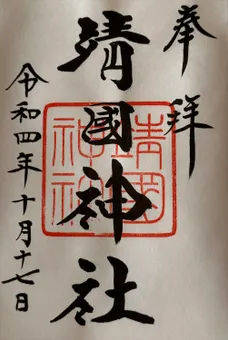 奉拝
靖國神社
靖國神社
令和四年十月十七日